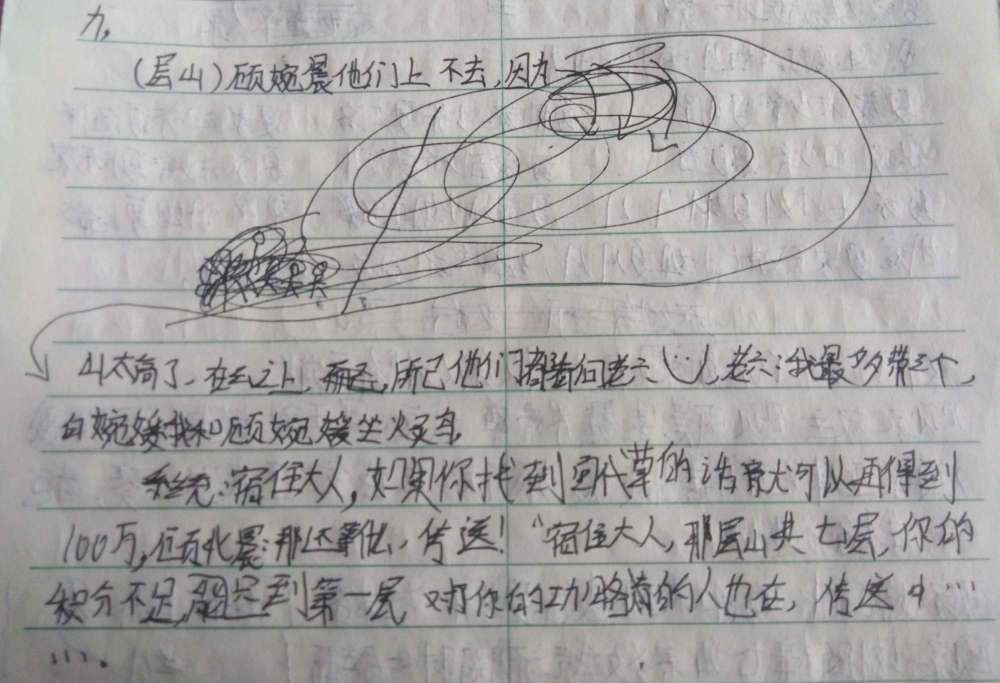 九,
(层山)顾婉晨他们上不去,因为
山太高了,在云之上,而已,所已他们都看向老六(:),老六:我最多带三个,
白婉媛我和顾婉媛坐火灵鸟
系统:宿住大人,如果你找到回代草的话竟尤可以再得到
100万,顾北晨:那还等什么,传送!“宿住大人,那层山共七层,你的
积分不足,只到第一层 对你的功略者的人也在,传送中…
….